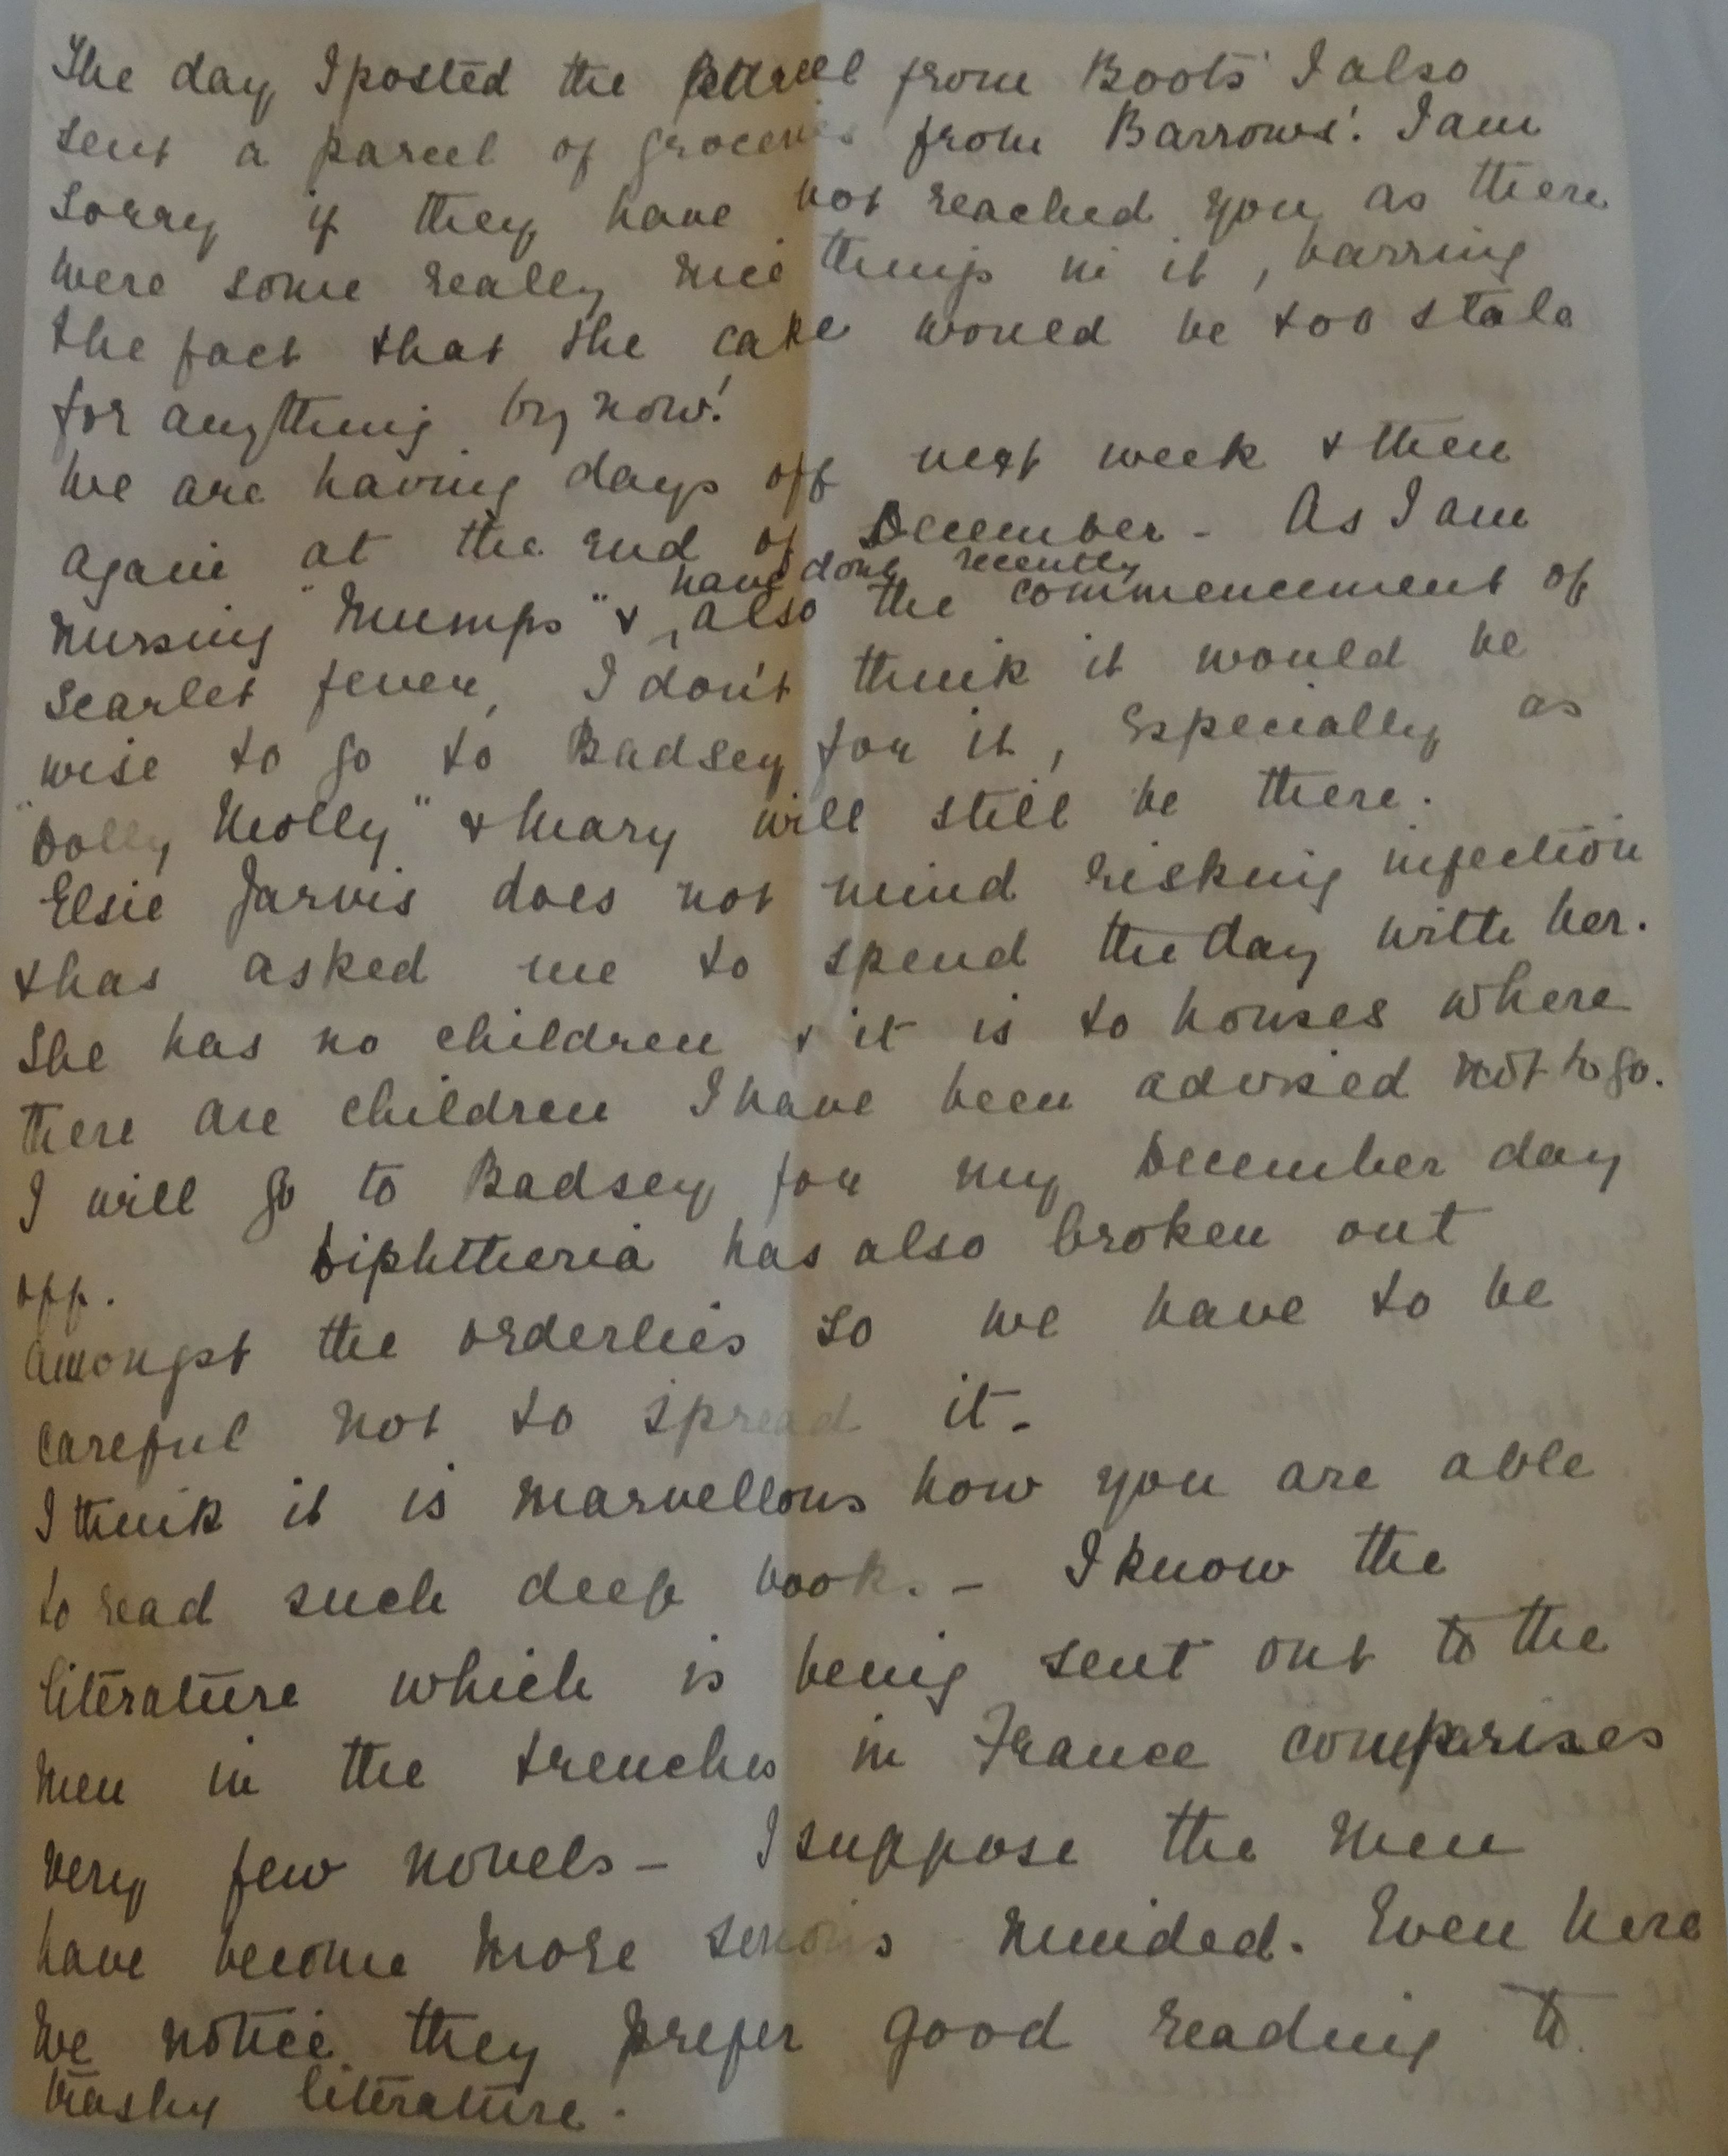 The day I posted the parcel from Boots' I also
sent a parcel of groceries from Barrows'. I am
sorry if they have not reached you as there
were some really nice things in it, barring
the fact that the cake would be too stale
for anything by now!
We are having days off next week & then
again at the end of December - As I am
have done recently
nursing "Mumps" & ^ also the commencement of
scarlet fever, I don't think it would be
wise to go to Badsey for it, especially as
"Dolly, Molly" & Mary will still be there.
Elsie Jarvis does not mind risking infection
& has asked me to spend the day with her.
She has no children & it is to houses where
there are children I have been advised not to go.
I will go to Badsey for my December day
off. Diphtheria has also broken out
amongst the orderlies so we have to be
careful not to spread it.
I think it is marvellous how you are able
to read such deep books. - I know the
literature which is being sent out to the
men in the trenches in France comprises
very few novels - I suppose the men
have become more serious minded. Even here
we notice they prefer good reading to
trashy literature.